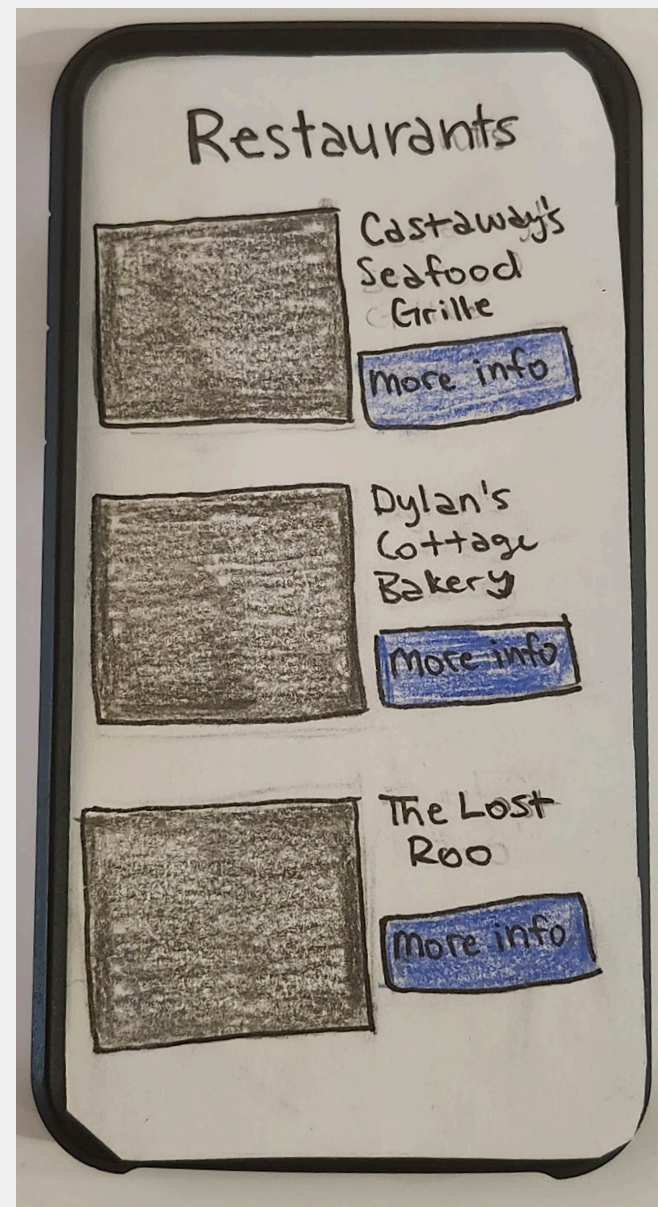 Restaurants
Castaway's
Seafood
Grille
more info
Dylan's
Cottage
Bakery
more info
The Lost
Roo
more info